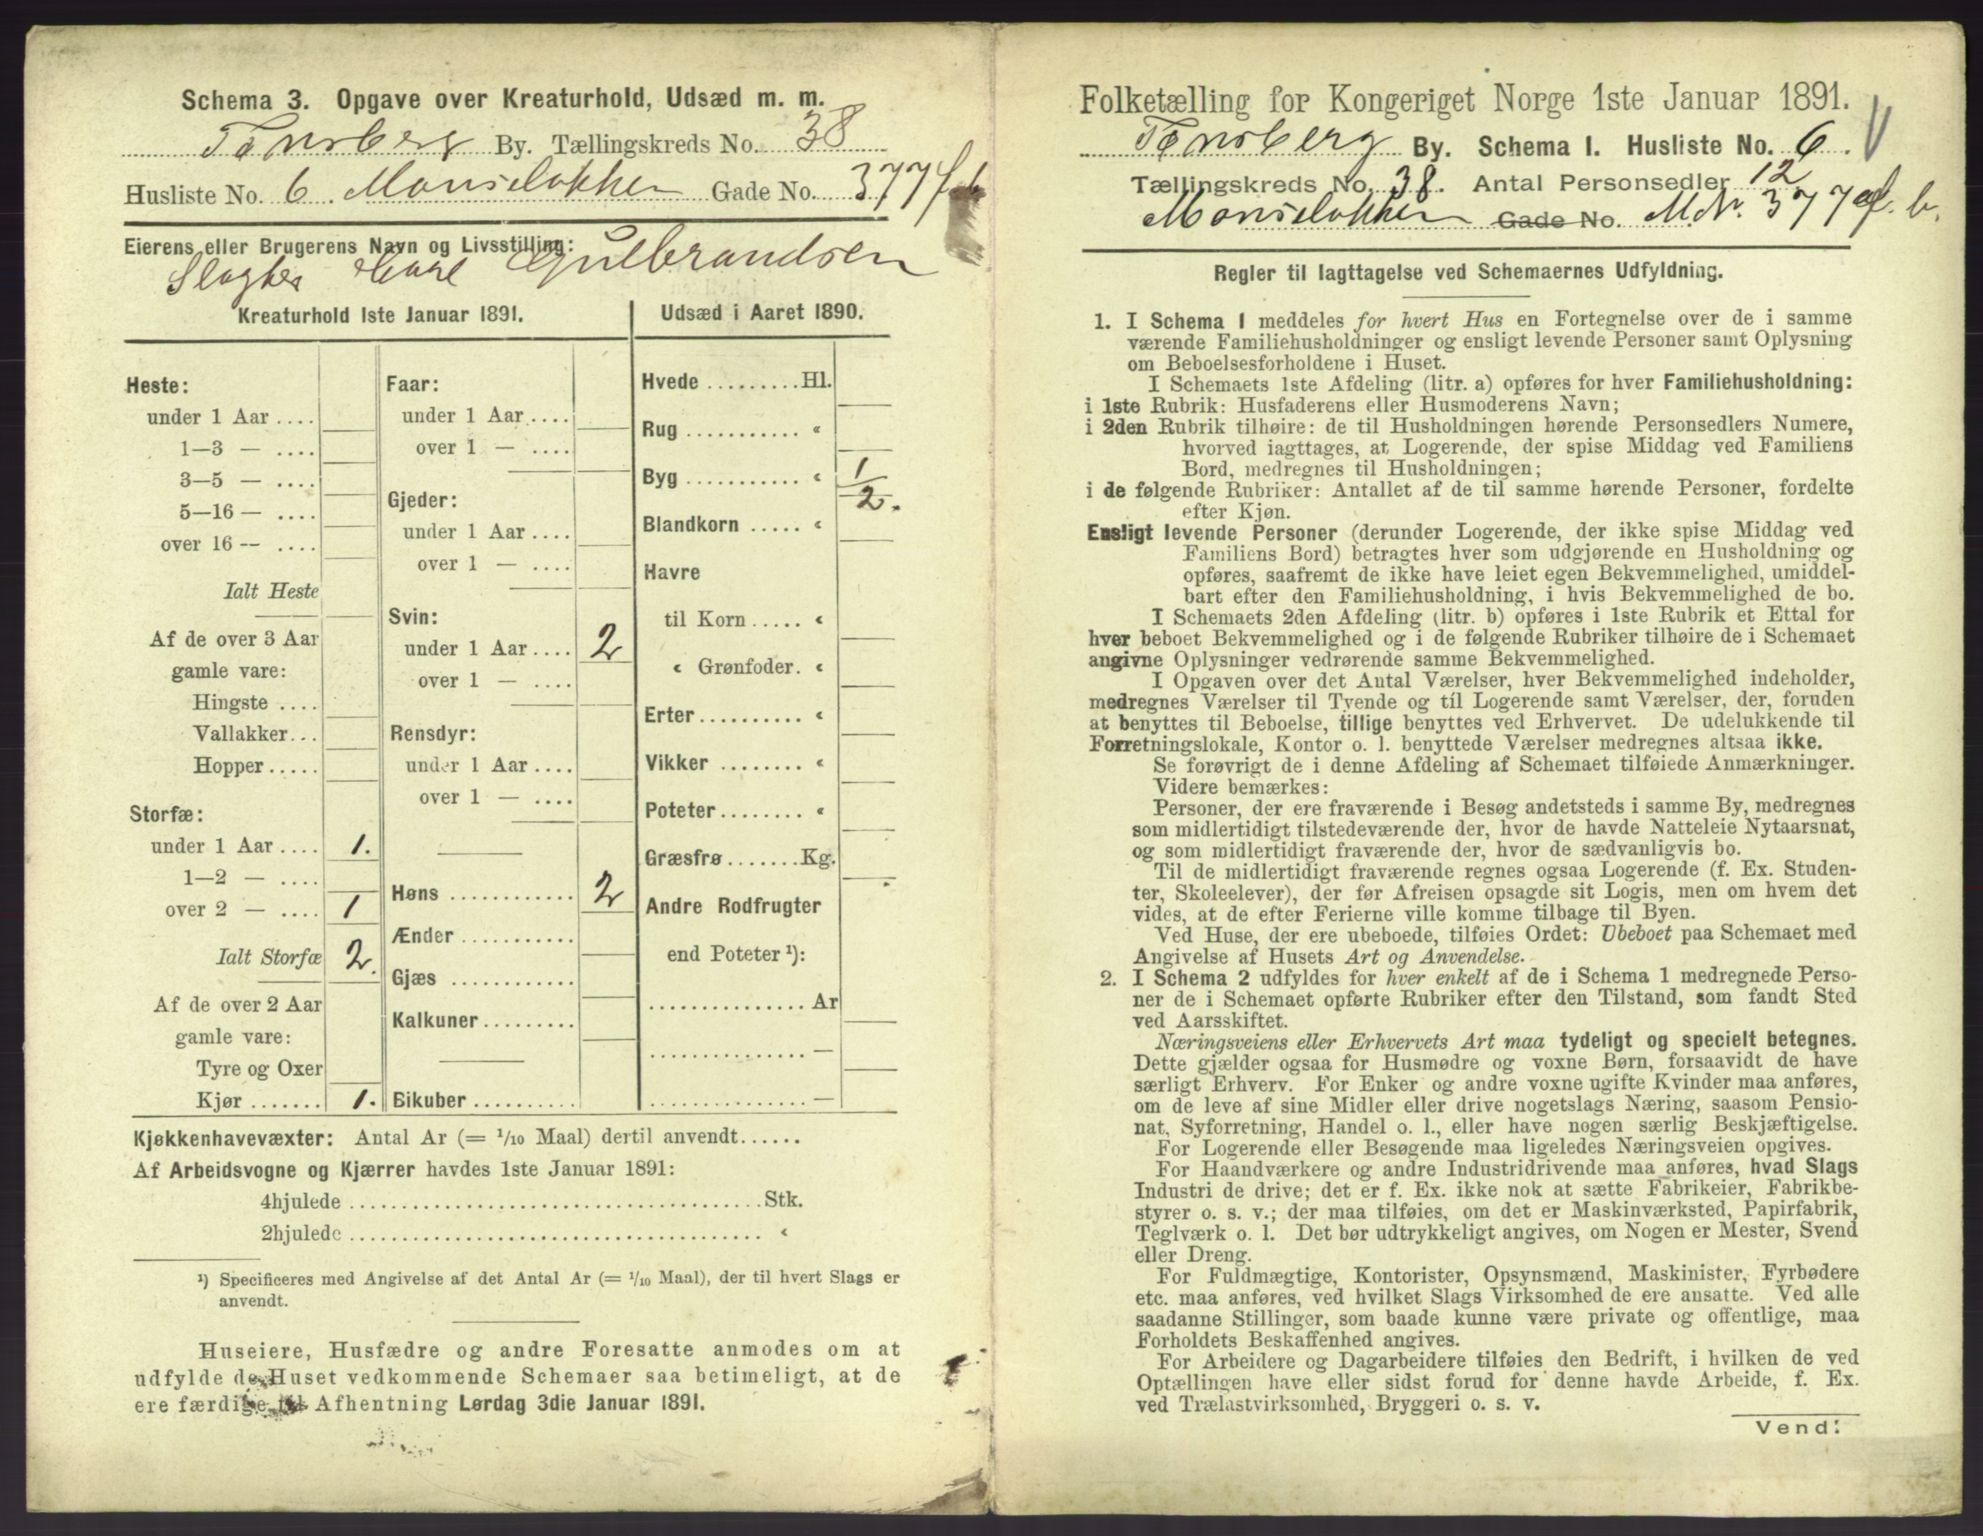 Schema 3. Opgave over Kreaturhold, Udsæd m. m.
Tønsberg By. Tællingskreds No. 38
Husliste No. 6 Gade No. 377
Eierens eller Brugerens Navn og Livsstilling:
Slagter Carl Gulbrandsen
Kreaturhold 1ste Januar 1891.
Heste:
under 1 Aar ....
1—3 — ....
3—5 — ....
5—16 — ....
over 16 — ....
Ialt Heste
Af de over 3 Aar
gamle vare:
Hingste ....
Vallakker...
Hopper.....
Storfæ:
under 1 Aar .... 1.
1—2 — ....
over 2 — .... 1
Ialt Storfæ 2.
Af de over 2 Aar
gamle vare:
Tyre og Oxer
Kjør ....... 1.
Faar:
under 1 Aar....
over 1 — ....
Gjeder:
under 1 Aar....
over 1 — ....
Svin:
under 1 Aar.... 2
over 1 — ....
Rensdyr:
under 1 Aar....
over 1 — ....
Høns ............ 2
Ænder ...........
Gjæs ............
Kalkuner.........
Bikuber ..........
Udsæd i Aaret 1890.
Hvede .........Hl.
Rug .......... «
Byg .......... « 1/2.
Blandkorn ..... «
Havre
til Korn ..... «
« Grønfoder. «
Erter......... «
Vikker ........ «
Poteter........ «
Græsfrø .......Kg.
Andre Rodfrugter
end Poteter ¹):
............... Ar
............... —
............... —
Kjøkkenhavevæxter: Antal Ar (= 1/10 Maal) dertil anvendt......
Af Arbeidsvogne og Kjærrer havdes 1ste Januar 1891:
4hjulede ........................................Stk.
2hjulede ........................................ «
¹) Specificeres med Angivelse af det Antal Ar (= 1/10 Maal), der til hvert Slags er
anvendt.
Huseiere, Husfædre og andre Foresatte anmodes om at
udfylde de Huset vedkommende Schemaer saa betimeligt, at de
ere færdige til Afhentning Lørdag 3die Januar 1891.
Folketælling for Kongeriget Norge 1ste Januar 1891.
Tønsberg By. Schema I. Husliste No. 6.
Tællingskreds No. 38. Antal Personsedler 12
Gade No. M.Nr. 377 b.
Regler til Iagttagelse ved Schemaernes Udfyldning.
1. I Schema 1 meddeles for hvert Hus en Fortegnelse over de i samme
værende Familiehusholdninger og ensligt levende Personer samt Oplysning
om Beboelsesforholdene i Huset.
I Schemaets 1ste Afdeling (litr. a) opføres for hver Familiehusholdning:
i 1ste Rubrik: Husfaderens eller Husmoderens Navn;
i 2den Rubrik tilhøire: de til Husholdningen hørende Personsedlers Numere,
hvorved iagttages, at Logerende, der spise Middag ved Familiens
Bord, medregnes til Husholdningen;
i de følgende Rubriker: Antallet af de til samme hørende Personer, fordelte
efter Kjøn.
Ensligt levende Personer (derunder Logerende, der ikke spise Middag ved
Familiens Bord) betragtes hver som udgjørende en Husholdning og
opføres, saafremt de ikke have leiet egen Bekvemmelighed, umiddel-
bart efter den Familiehusholdning, i hvis Bekvemmelighed de bo.
I Schemaets 2den Afdeling (litr. b) opføres i 1ste Rubrik et Ettal for
hver beboet Bekvemmelighed og i de følgende Rubriker tilhøire de i Schemaet
angivne Oplysninger vedrørende samme Bekvemmelighed.
I Opgaven over det Antal Værelser, hver Bekvemmelighed indeholder,
medregnes Værelser til Tyende og til Logerende samt Værelser, der, foruden
at benyttes til Beboelse, tillige benyttes ved Erhvervet. De udelukkende til
Forretningslokale, Kontor o. l. benyttede Værelser medregnes altsaa ikke.
Se forøvrigt de i denne Afdeling af Schemaet tilføiede Anmærkninger.
Videre bemærkes:
Personer, der ere fraværende i Besøg andetsteds i samme By, medregnes
som midlertidigt tilstedeværende der, hvor de havde Natteleie Nytaarsnat,
og som midlertidigt fraværende der, hvor de sædvanligvis bo.
Til de midlertidigt fraværende regnes ogsaa Logerende (f. Ex. Studen-
ter, Skoleelever), der før Afreisen opsagde sit Logis, men om hvem det
vides, at de efter Ferierne ville komme tilbage til Byen.
Ved Huse, der ere ubeboede, tilføies Ordet: Ubeboet paa Schemaet med
Angivelse af Husets Art og Anvendelse.
2. I Schema 2 udfyldes for hver enkelt af de i Schema 1 medregnede Perso-
ner de i Schemaet opførte Rubriker efter den Tilstand, som fandt Sted
ved Aarsskiftet.
Næringsveiens eller Erhvervets Art maa tydeligt og specielt betegnes.
Dette gjælder ogsaa for Husmødre og voxne Børn, forsaavidt de have
særligt Erhverv. For Enker og andre voxne ugifte Kvinder maa anføres,
om de leve af sine Midler eller drive nogetslags Næring, saasom Pensio-
nat, Syforretning, Handel o. l., eller have nogen særlig Beskjæftigelse.
For Logerende eller Besøgende maa ligeledes Næringsveien opgives.
For Haandværkere og andre Industridrivende maa anføres, hvad Slags
Industri de drive; det er f. Ex. ikke nok at sætte Fabrikeier, Fabrikbe-
styrer o. s. v.; der maa tilføies, om det er Maskinværksted, Papirfabrik,
Teglværk o. l. Det bør udtrykkeligt angives, om Nogen er Mester, Svend
eller Dreng.
For Fuldmægtige, Kontorister, Opsynsmænd, Maskinister, Fyrbødere
etc. maa anføres, ved hvilket Slags Virksomhed de ere ansatte. Ved alle
saadanne Stillinger, som baade kunne være private og offentlige, maa
Forholdets Beskaffenhed angives.
For Arbeidere og Dagarbeidere tilføies den Bedrift, i hvilken de ved
Optællingen have eller sidst forud for denne havde Arbeide, f. Ex.
ved Trælastvirksomhed, Bryggeri o. s. v.
Vend: